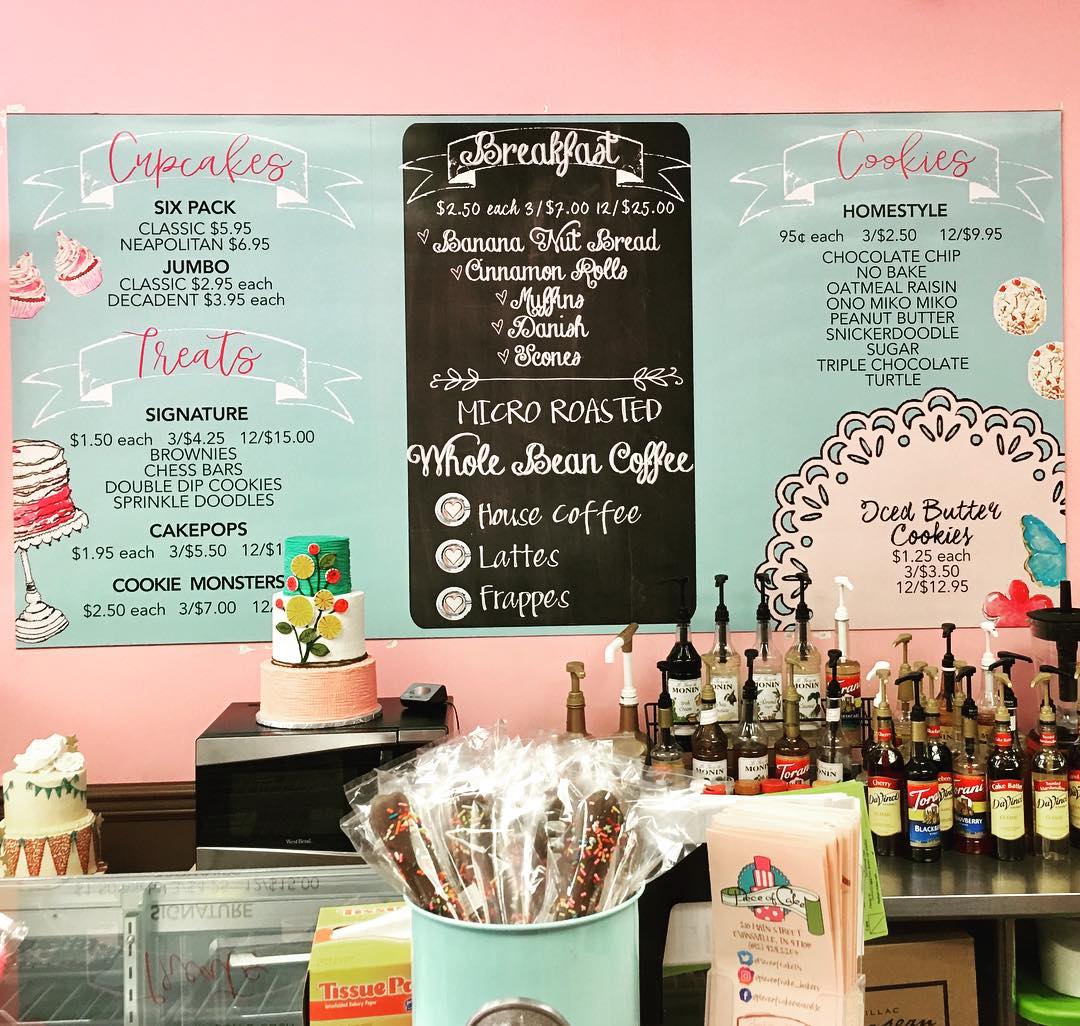 Cupcakes
SIX PACK
CLASSIC $5.95
NEAPOLITAN $6.95
JUMBO
CLASSIC $2.95 each
DECADENT $3.95 each
Treats
SIGNATURE
$1.50 each 3/$4.25 12/$15.00
BROWNIES
CHESS BARS
DOUBLE DIP COOKIES
SPRINKLE DOODLES
CAKEPOPS
$1.95 each 3/$5.50 12/$1
COOKIE MONSTERS
$2.50 each 3/$7.00 12/
Breakfast
$2.50 each 3/$7.00 12/$25.00
Banana Nut Bread
Cinnamon Rolls
Muffins
Danish
Scones
MICRO ROASTED
Whole Bean Coffee
House Coffee
Lattes
Frappes
Cookies
HOMESTYLE
95¢ each 3/$2.50 12/$9.95
CHOCOLATE CHIP
NO BAKE
OATMEAL RAISIN
ONO MIKO MIKO
PEANUT BUTTER
SNICKERDOODLE
SUGAR
TRIPLE CHOCOLATE
TURTLE
Iced Butter
Cookies
$1.25 each
3/$3.50
12/$12.95
MONIN
MONIN
MONIN
MONIN
Torani
MONIN
MONIN
Torani
MONIN
Cherry
DaVinci
Torani
BLACKB
Torani
Cake Batter
DaVinci
DaVinci
West Bend
12/$15.00
SIGNATURE
Treats
Tissue
Tissue Pa
Interfolded Bakery Paper
Piece of Cake
MAIN STREET